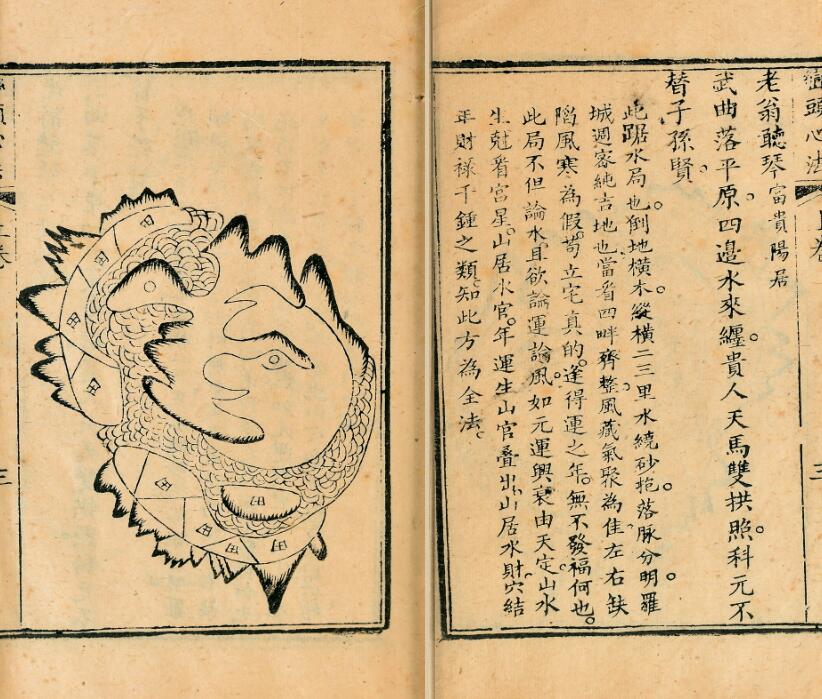 頭心法
三
老翁聽琴富貴陽居
武曲落平原。四邊水來纏。貴人天馬雙拱照。科元不
替子孫賢。
此踞水局也。倒地橫木。縱橫二三里水繞砂抱。落脉分明。羅
城週密純吉地也。當看四畔齊整。風藏氣聚為佳。左右缺
陷風寒為假。苟立宅真的。逢得運之年。無不發福何也。
此局不但論水且欲論運論風。如元運興衰由天定。山水
生尅看宮星。山居水官。年運生山官叠出。山居水財。穴結
年財祿千鍾之類。知此方為全法。
田
田
田
田
田
田
田
田
田
三